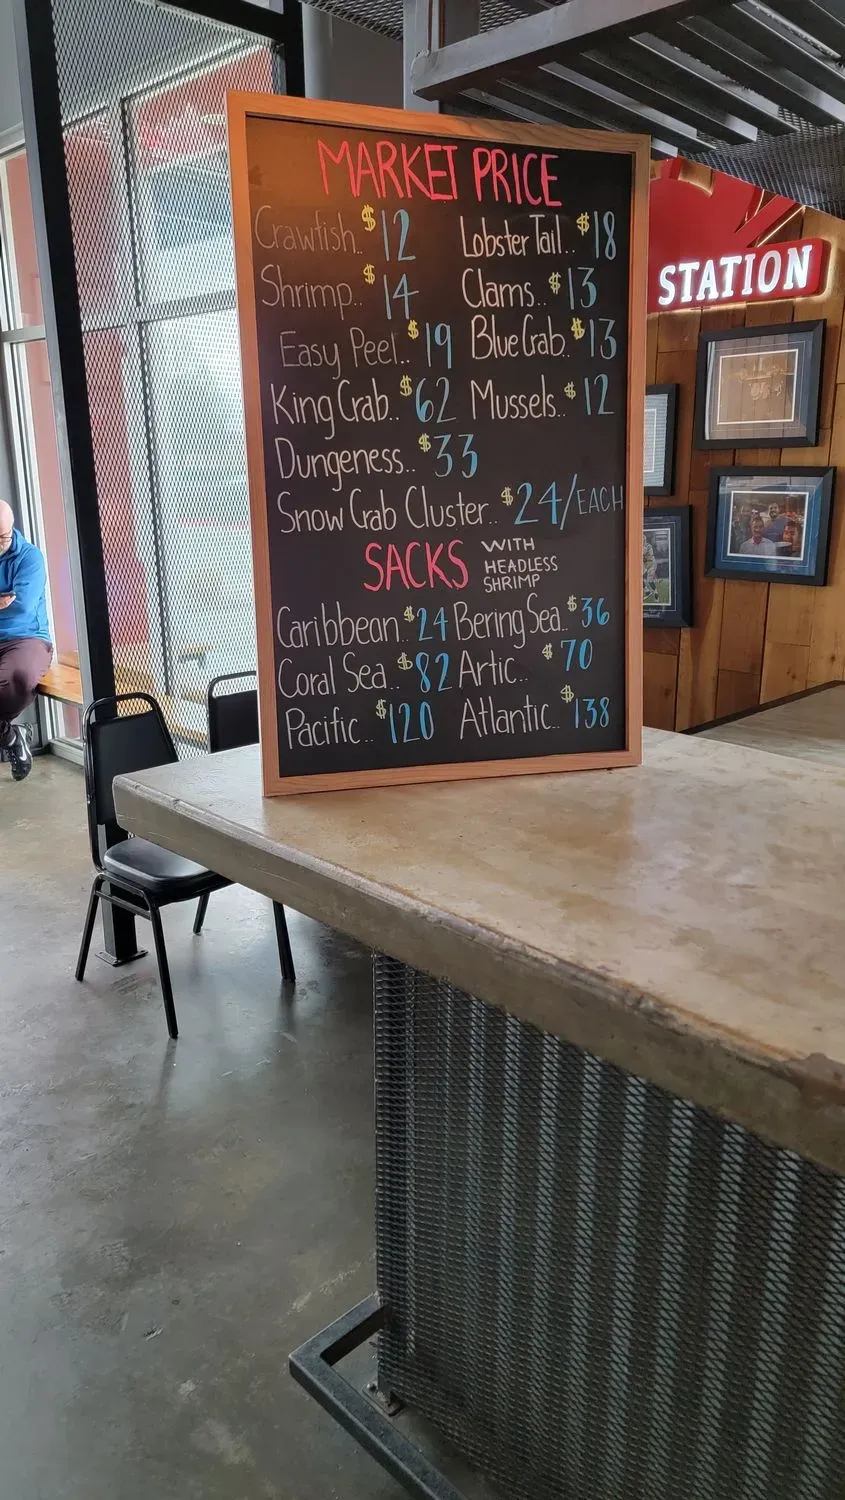 MARKET PRICE
Crawfish.. $12 Lobster Tail.. $18
Shrimp.. $14 Clams.. $13
Easy Peel.. $19 Blue Crab.. $13
King Crab.. $62 Mussels.. $12
Dungeness.. $33
Snow Crab Cluster.. $24/EACH
SACKS WITH HEADLESS SHRIMP
Caribbean.. $24 Bering Sea.. $36
Coral Sea.. $82 Artic.. $70
Pacific.. $120 Atlantic.. $138
STATION